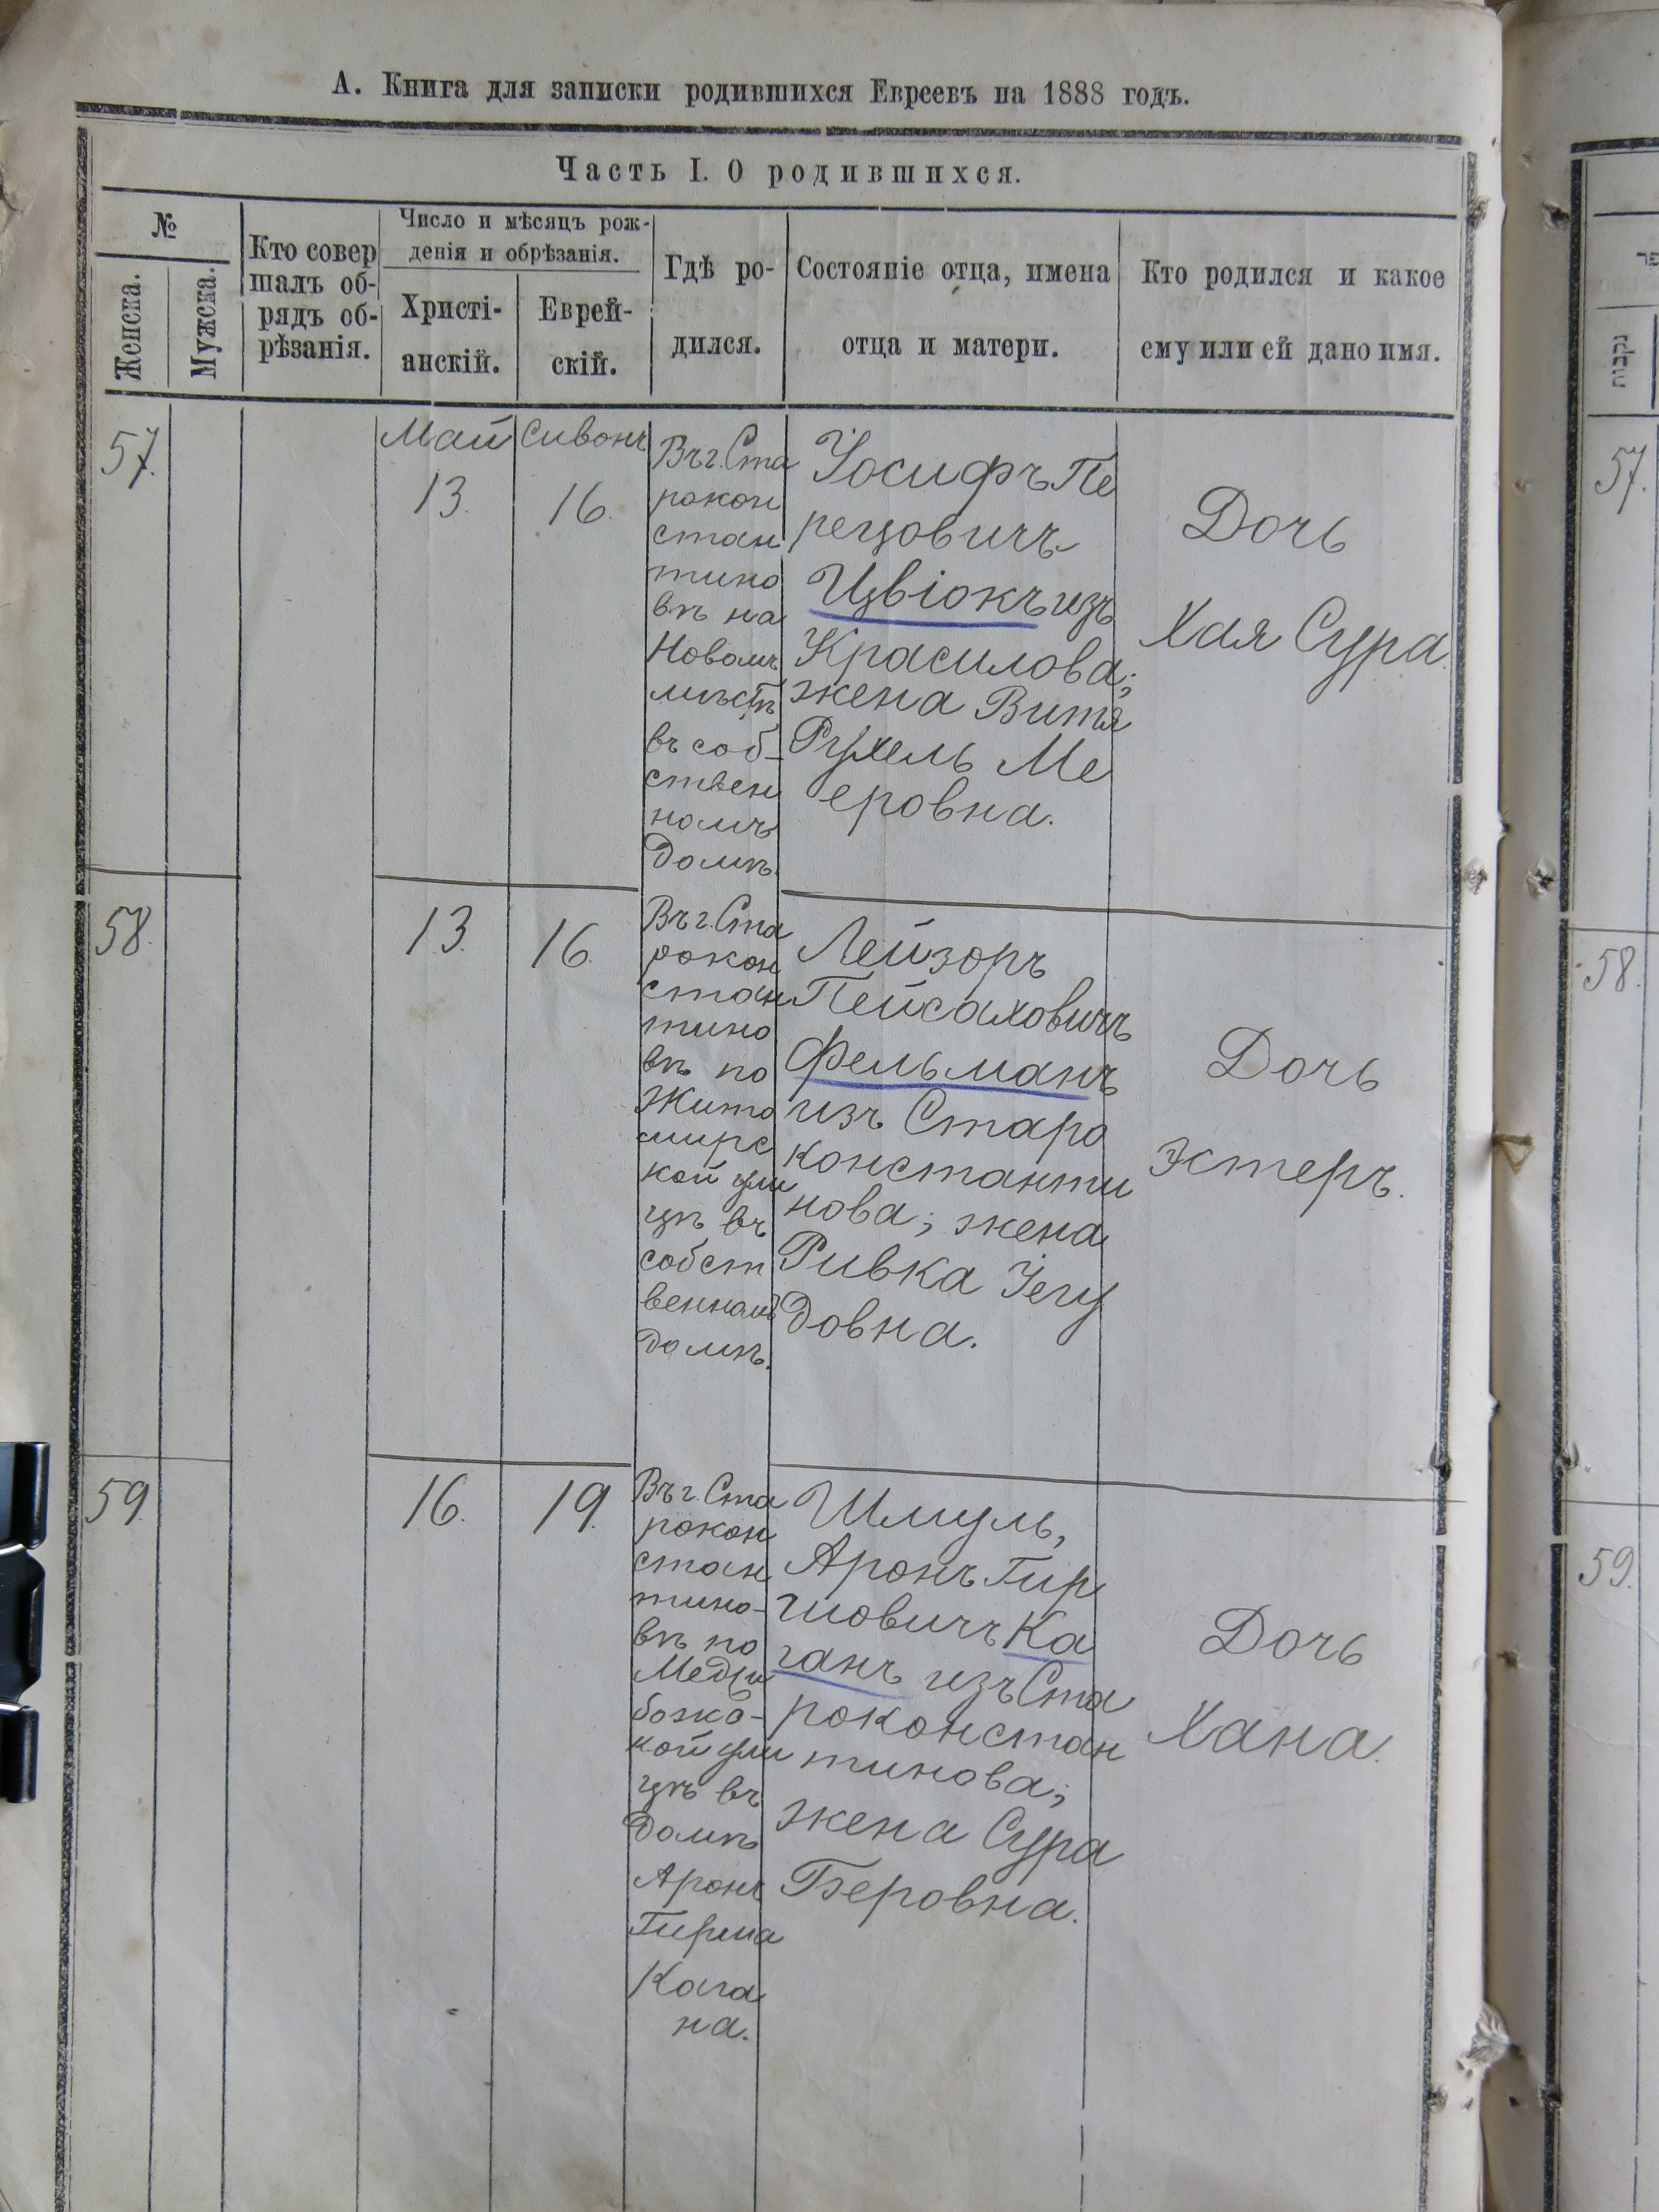 А. Книга для записки родившихся Евреевъ на 1888 годъ.
Часть I. О родившихся.
№
Женска.
Мужска.
Кто совер
шалъ об-
рядъ об-
рѣзанія.
Число и мѣсяцъ рож-
денія и обрѣзанія.
Христі-
анскій.
Еврей-
скій.
Гдѣ ро-
дился.
Состояніе отца, имена
отца и матери.
Кто родился и какое
ему или ей дано имя.
57.
Май
13.
Сивонъ
16.
Въ г. Ста
рокон
стан
тино
вѣ на
Новомъ
мѣстѣ
въ соб-
ствен
номъ
домѣ.
Іосифъ Пе
рецовичъ
Цвіокъ изъ
Красилова;
жена Витя
Рухель Ме
еровна.
Дочь
Хая Сура.
58.
13.
16.
Въ г. Ста
рокон
стан
тино
вѣ по
Жито
мирс
кой ули
цѣ въ
собст
венномъ
домѣ.
Лейзоръ
Пейсаховичъ
Фельманъ
изъ Старо
константи
нова; жена
Ривка Іегу
довна.
Дочь
Эстеръ.
59.
16.
19.
Въ г. Ста
рокон
стан
тино-
вѣ по
Меджи
божс-
кой ули
цѣ въ
домѣ
Аронъ
Гирша
Кага
на.
Шмуль,
Аронъ Гир
шовичъ Ка
ганъ изъ Ста
роконстан
тинова;
жена Сура
Беровна.
Дочь
Хана.
נקבות
57.
58.
59.